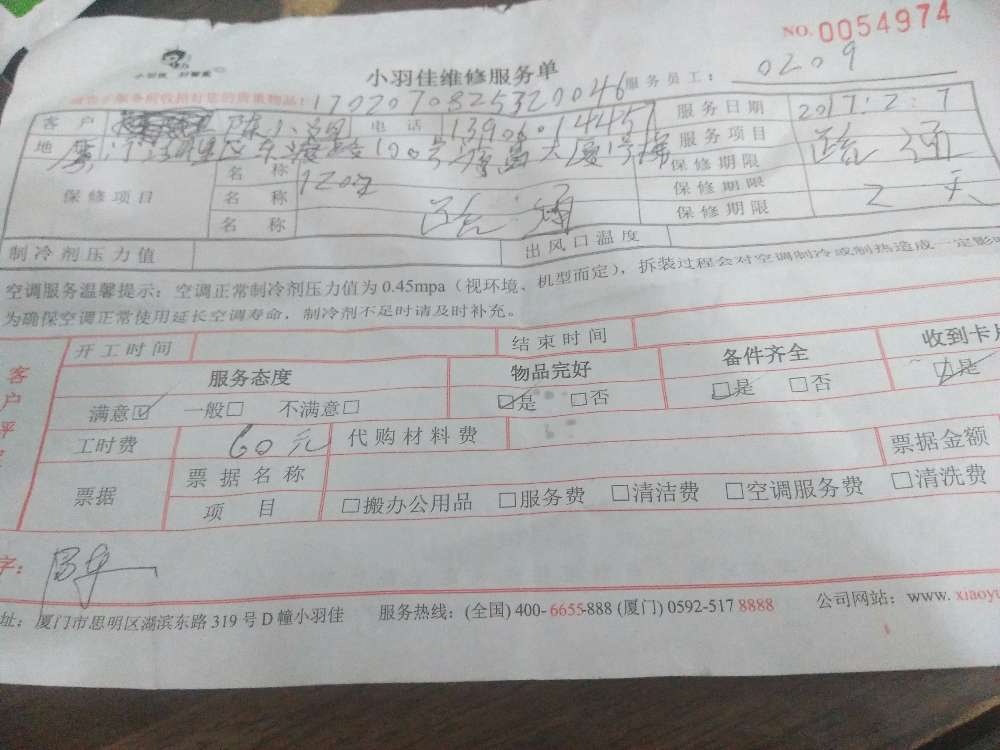 NO.0054974
小羽佳维修服务单
服务员工： 0209
1702070825320046
客 户 陈小 电 话 服务日期 2017.2.7
地 东渡路100号 大厦1号梯 服务项目 疏通
保修项目 名 称 保修期限
名 称 疏通 保修期限 2天
名 称 保修期限
制冷剂压力值 出风口温度
空调服务温馨提示：空调正常制冷剂压力值为0.45mpa（视环境、机型而定），拆装过程会对空调制冷或制热造成一定影
为确保空调正常使用延长空调寿命，制冷剂不足时请及时补充。
客户评 开工时间 结束时间
服务态度 物品完好 备件齐全 收到卡片
满意☑ 一般□ 不满意□ ☑是 □否 ☑是 □否 ☑是
工时费 60元 代购材料费 票据金额
票据 票据名称
项 目 □搬办公用品 □服务费 □清洁费 □空调服务费 □清洗费
字：
址：厦门市思明区湖滨东路319号D幢小羽佳 服务热线：(全国) 400-6655-888 (厦门) 0592-517 8888 公司网站：www. xiaoyu